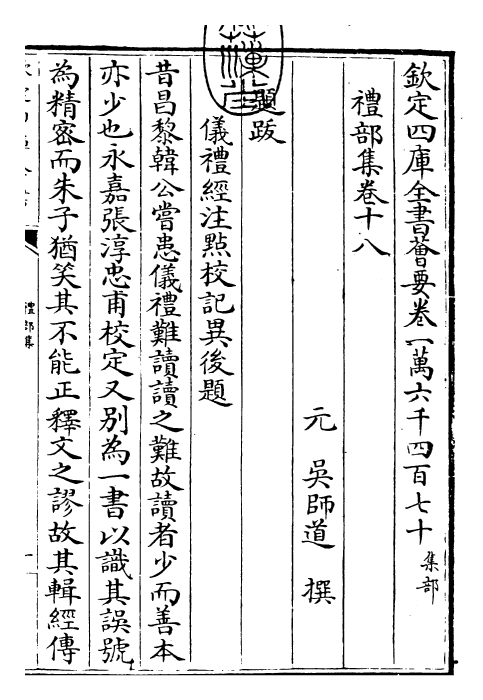 欽定四庫全書薈要卷一萬六千四百七十集部
禮部集卷十八
元 吳師道 撰
題跋
儀禮經注點校記異後題
昔昌黎韓公嘗患儀禮難讀讀之難故讀者少而善本
亦少也永嘉張淳忠甫校定又别為一書以識其誤號
為精密而朱子猶笑其不能正釋文之謬故其輯經傳
禮部集
一